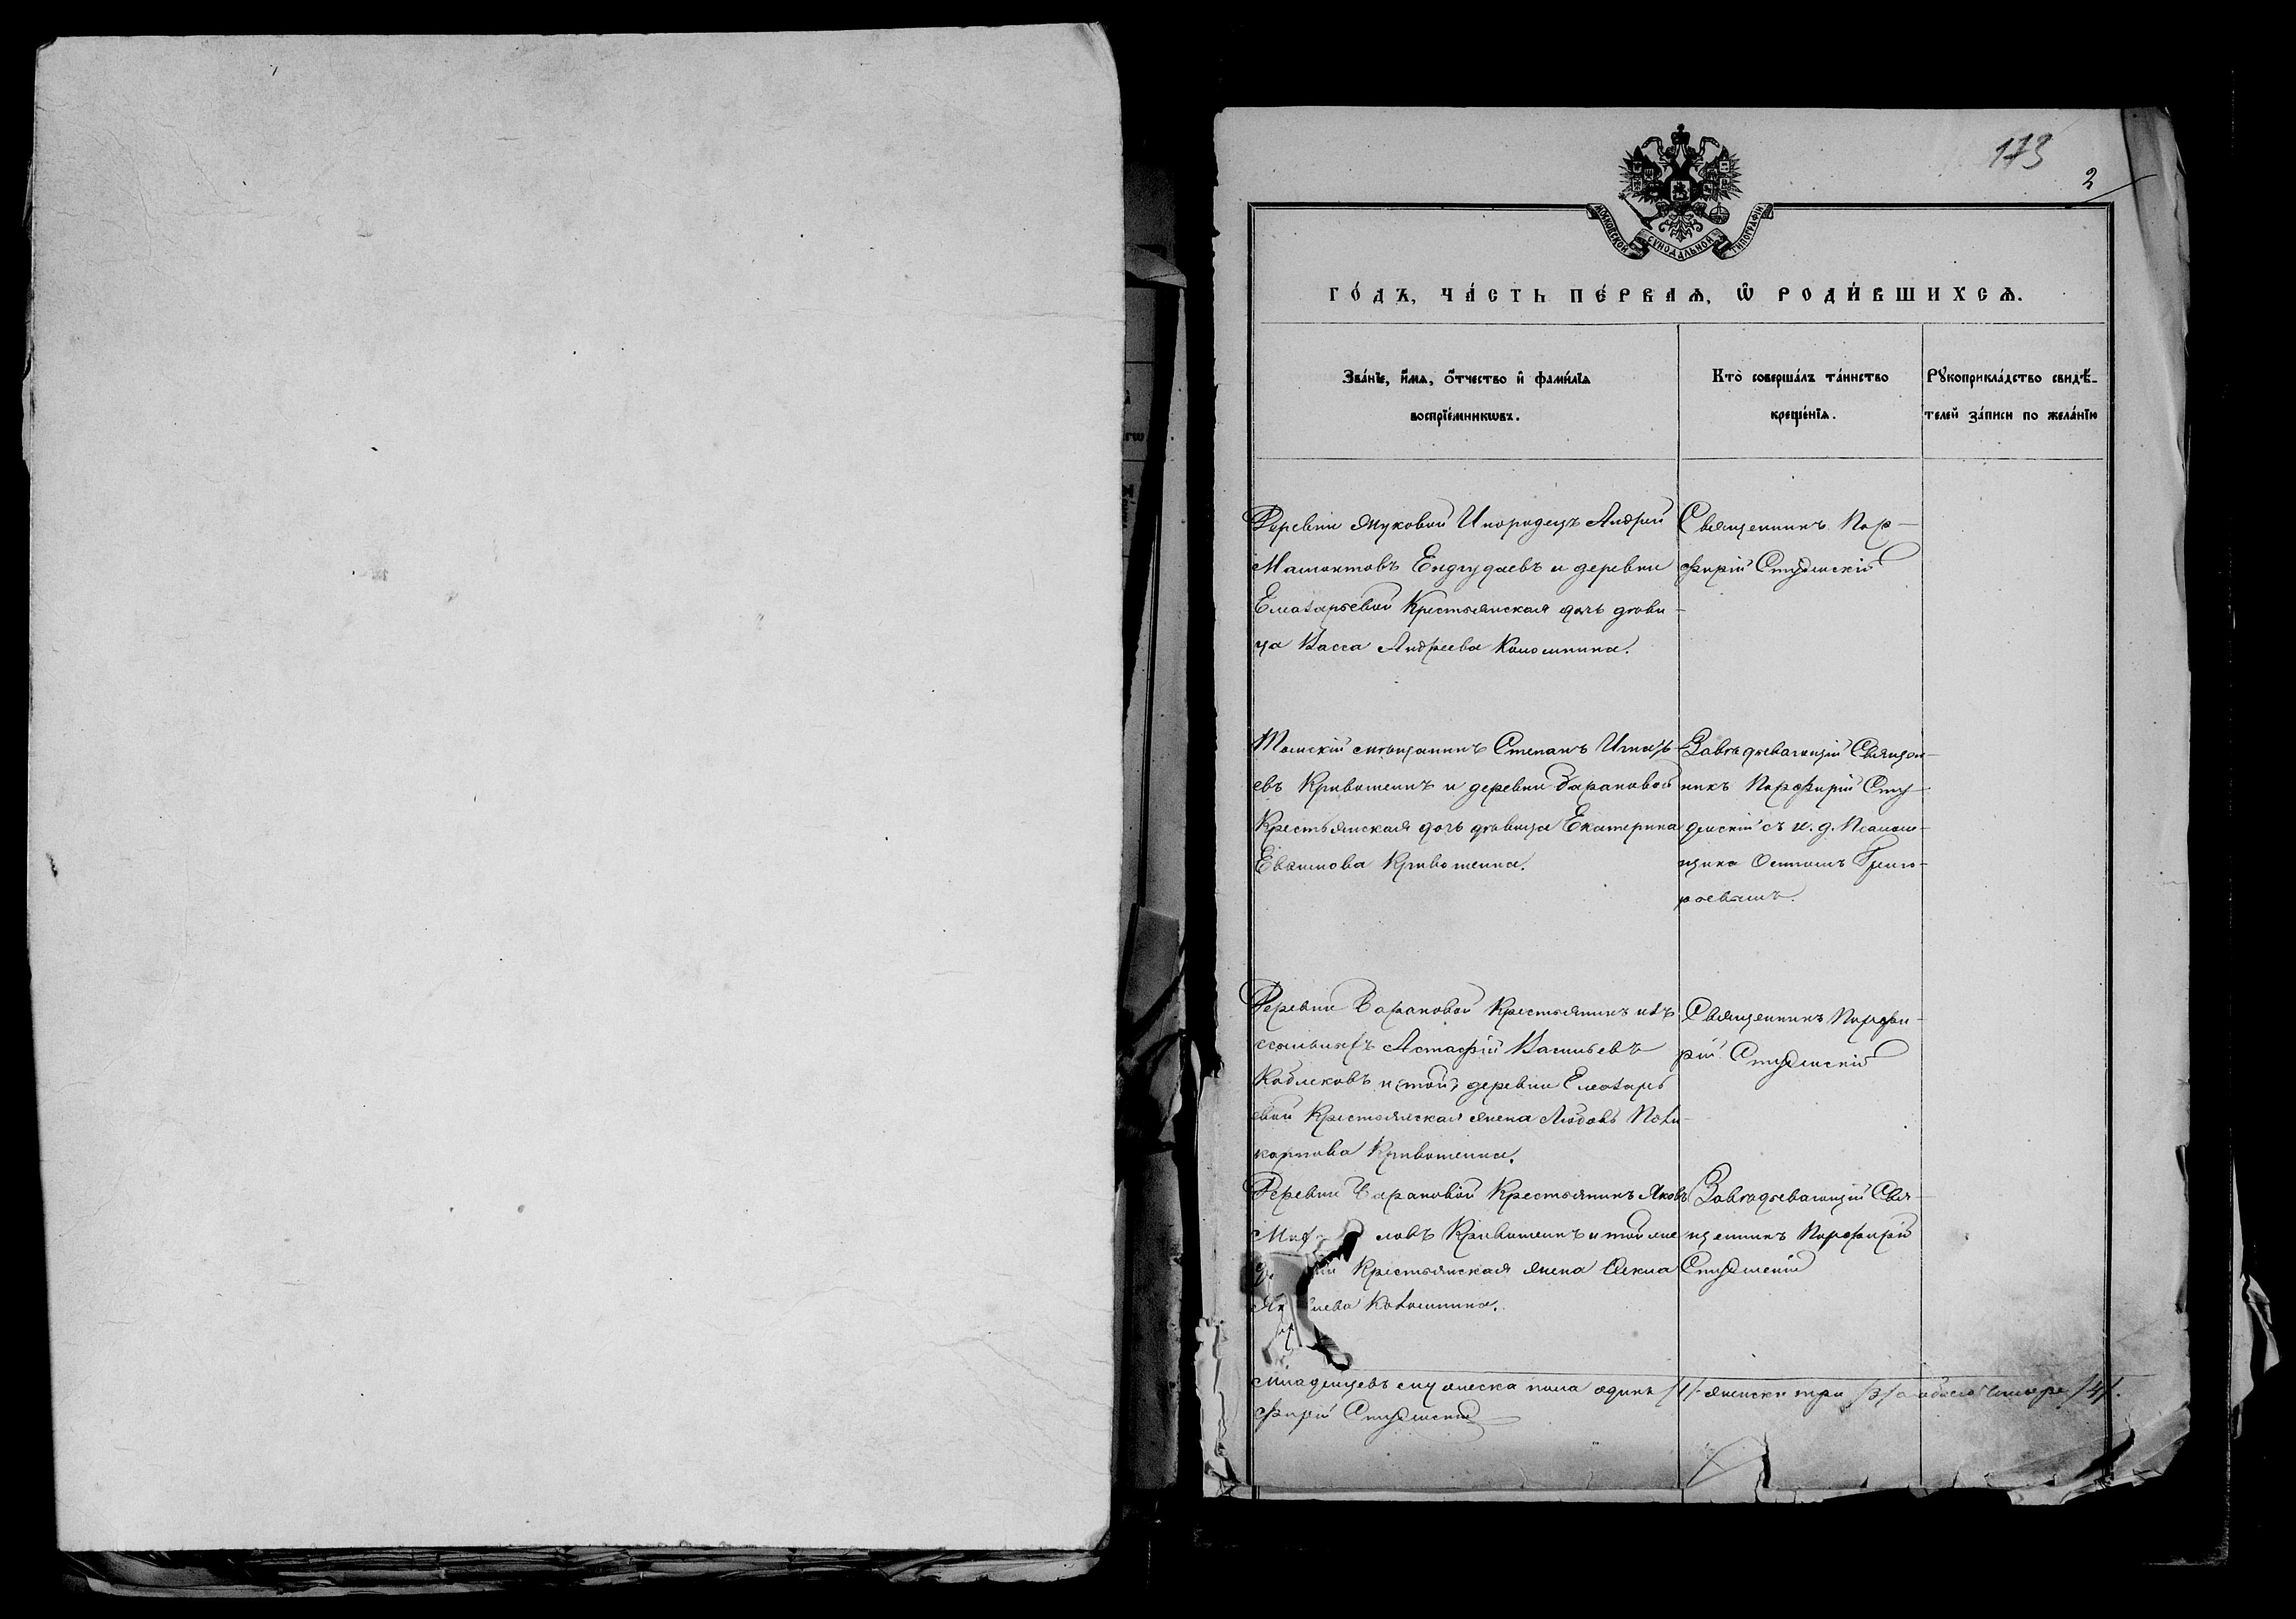 173
2
МОСКОВСКОЙ СѴНОДАЛЬНОЙ ТИПОГРАФІИ
ГО́ДЪ, ЧА́СТЬ ПЕ́РВАѦ, Ѡ҆ РОДИ́ВШИХСѦ.
Зва́нїе, и҆́мѧ, ѻ҆́тчество и҆ фамѝлїѧ
воспрїе́мникѡвъ.
Кто̀ соверша́лъ та́инство
креще́нїѧ.
Рꙋкоприкла́дство свидѣ́-
телей за́писи по жела́нїю
Деревни Жуковой Инородецъ Андрей
Мамонтовъ Ендгудаевъ и деревни
Елизарьевой Крестьянская дочь дѣви-
ца Васса Андреева Коломнина.
Священникъ Пор-
фирій Студенскій
Томскій мѣщанинъ Степанъ Игнать-
евъ Кривошеинъ и деревни Барановой
Крестьянская дочь дѣвица Екатерина
Евѳимова Кривошеина.
Завѣдывающій Священ-
никъ Порфирій Сту-
денскій съ и. д. Псалом-
щика Осипомъ Григо-
роевымъ.
Деревни Барановой Крестьянинъ изъ
ссыльныхъ Астафій Васильевъ
Кобляковъ и деревни Елизарь
евой Крестьянская жена Любовь Поли-
карпова Кривошеина.
Священникъ Порфи-
рій Студенскій
Деревни Барановой Крестьянинъ Яковъ
ловъ Кривошеинъ и той же
Крестьянская жена Ѳекла
Коломнина.
Завѣдывающій Свя-
щенникъ Порфирій
Студенскій
Младенцевъ мужеска пола одинъ /1/ женска три /3/ а обоего четыре /4/.
фирій Студенскій